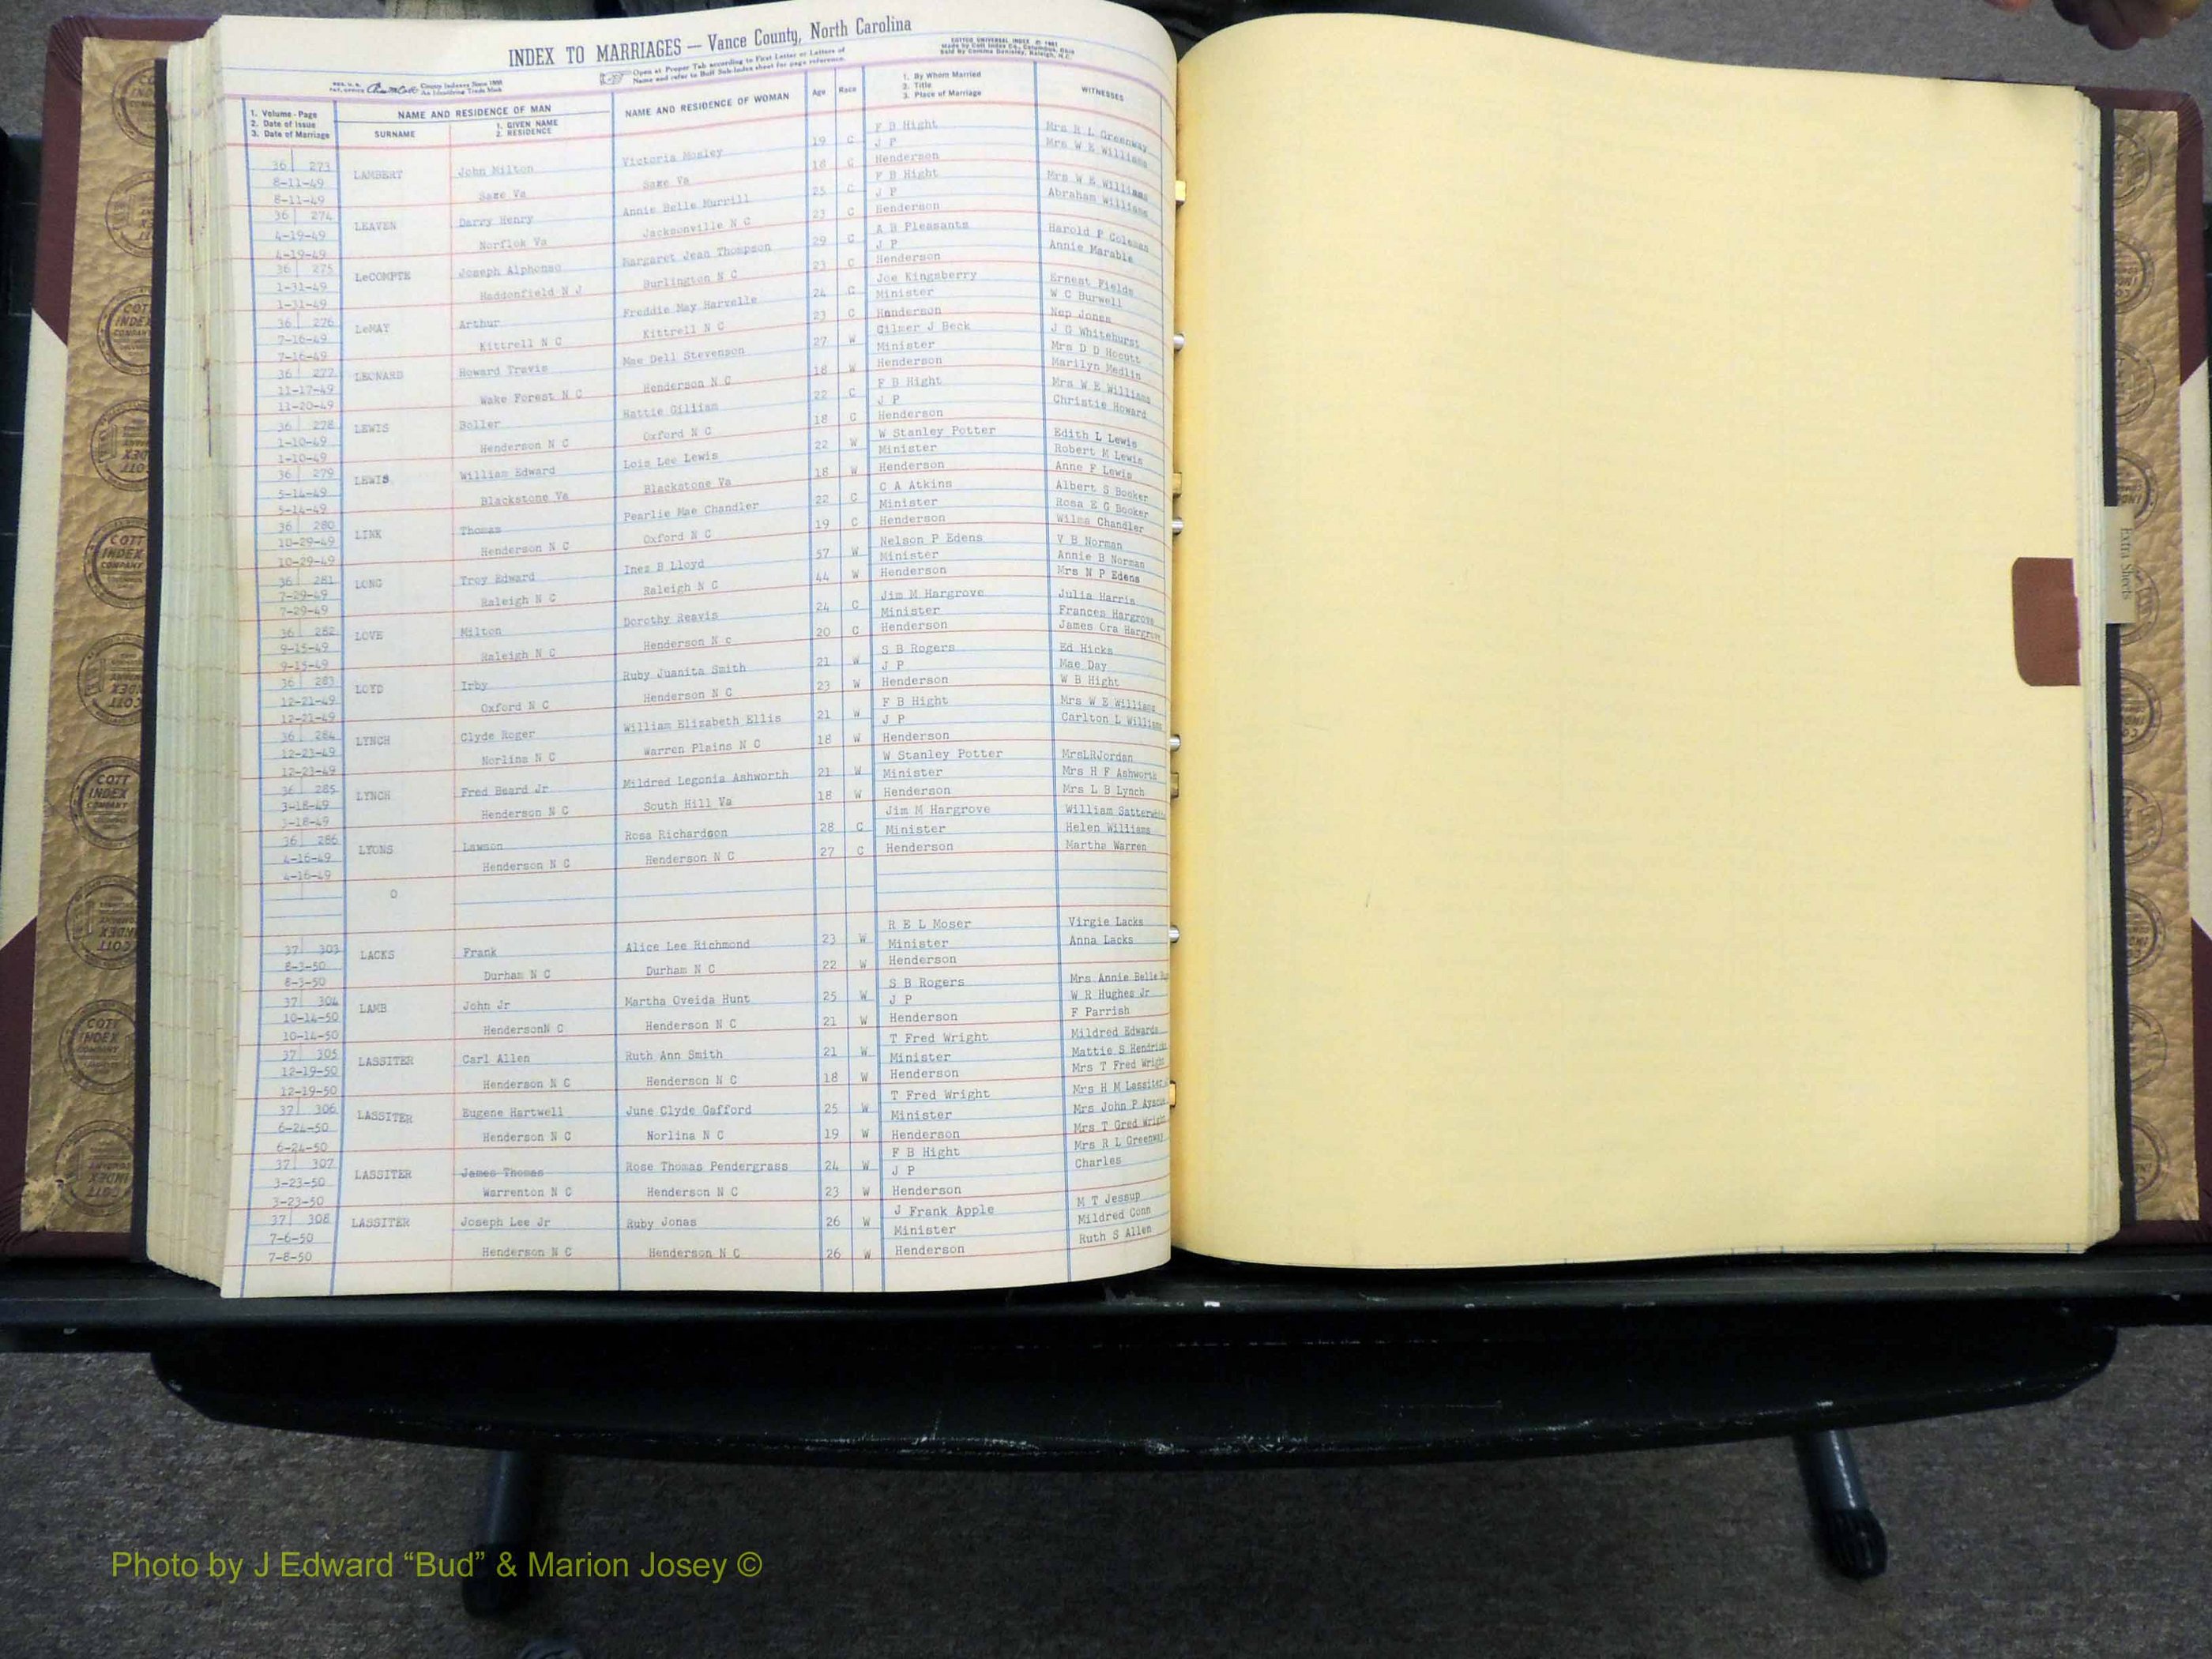 INDEX TO MARRIAGES — Vance County, North Carolina
Open at Proper Tab according to First Letter or Letters of
Name and refer to Buff Sub-Index sheet for page reference.
COTTCO UNIVERSAL INDEX
Made by Cott Index Co., Columbus, Ohio
County Indexes Since 1888
An Identifying Trade Mark
1. Volume - Page
2. Date of Issue
3. Date of Marriage
NAME AND RESIDENCE OF MAN
SURNAME
1. GIVEN NAME
2. RESIDENCE
NAME AND RESIDENCE OF WOMAN
Age
Race
1. By Whom Married
2. Title
3. Place of Marriage
WITNESSES
36 273 LAMBERT John Milton Victoria Mosley 19 C F B Hight Mrs R L Greenway
8-11-49 Saxe Va Saxe Va 18 C J P Mrs W E Williams
8-11-49 Henderson
36 274 LEAVEN Darry Henry Annie Belle Murrill 25 C F B Hight Mrs W E Williams
4-19-49 Norflok Va Jacksonville N C 23 C J P Abraham Williams
4-19-49 Henderson
36 275 LeCOMPTE Joseph Alphonso Margaret Jean Thompson 29 C A B Pleasants Harold P Coleman
1-31-49 Haddonfield N J Burlington N C 23 C J P Annie Marable
1-31-49 Henderson
36 276 LeMAY Arthur Freddie May Harvelle 24 C Joe Kingsberry Ernest Fields
7-16-49 Kittrell N C Kittrell N C 23 C Minister W C Burwell
7-16-49 Henderson Nep Jones
36 277 LEONARD Howard Travis Mae Dell Stevenson 27 W Gilmer J Beck J G Whitehurst
11-17-49 Wake Forest N C Henderson N C 18 W Minister Mrs D D Hocutt
11-20-49 Henderson Marilyn Medlin
36 278 LEWIS Boller Hattie Gilliam 22 C F B Hight Mrs W E Williams
1-10-49 Henderson N C Oxford N C 18 C J P Christie Howard
1-10-49 Henderson
36 279 LEWIS William Edward Lois Lee Lewis 22 W W Stanley Potter Edith L Lewis
5-14-49 Blackstone Va Blackstone Va 18 W Minister Robert M Lewis
5-14-49 Henderson Anne F Lewis
36 280 LINK Thomas Pearlie Mae Chandler 22 C C A Atkins Albert S Booker
10-29-49 Henderson N C Oxford N C 19 C Minister Rosa E G Booker
10-29-49 Henderson Wilma Chandler
36 281 LONG Troy Edward Inez B Lloyd 57 W Nelson P Edens V B Norman
7-29-49 Raleigh N C Raleigh N C 44 W Minister Annie B Norman
7-29-49 Henderson Mrs N P Edens
36 282 LOVE Milton Dorothy Reavis 24 C Jim M Hargrove Julia Harris
9-15-49 Raleigh N C Henderson N c 20 C Minister Frances Hargrove
9-15-49 Henderson James Ora Hargrove
36 283 LOYD Irby Ruby Juanita Smith 21 W S B Rogers Ed Hicks
12-21-49 Oxford N C Henderson N C 23 W J P Mae Day
12-21-49 Henderson W B Hight
36 284 LYNCH Clyde Roger William Elizabeth Ellis 21 W F B Hight Mrs W E Williams
12-23-49 Norlina N C Warren Plains N C 18 W J P Carlton L Williams
12-23-49 Henderson
36 285 LYNCH Fred Beard Jr Mildred Legonia Ashworth 21 W W Stanley Potter MrsLRJordan
3-18-49 Henderson N C South Hill Va 18 W Minister Mrs H F Ashworth
3-18-49 Henderson Mrs L B Lynch
36 286 LYONS Lawson Rosa Richardson 28 C Jim M Hargrove William
4-16-49 Henderson N C Henderson N C 27 C Minister Helen Williams
4-16-49 Henderson Martha Warren
O
37 303 LACKS Frank Alice Lee Richmond 23 W R E L Moser Virgie Lacks
8-3-50 Durham N C Durham N C 22 W Minister Anna Lacks
8-3-50 Henderson
37 304 LAMB John Jr Martha Oveida Hunt 25 W S B Rogers Mrs Annie Belle
10-14-50 HendersonN C Henderson N C 21 W J P W R Hughes Jr
10-14-50 Henderson F Parrish
37 305 LASSITER Carl Allen Ruth Ann Smith 21 W T Fred Wright Mildred Edwards
12-19-50 Henderson N C Henderson N C 18 W Minister Mattie S
12-19-50 Henderson Mrs T Fred Wright
37 306 LASSITER Eugene Hartwell June Clyde Gafford 25 W T Fred Wright Mrs H M Lassiter
6-24-50 Henderson N C Norlina N C 19 W Minister Mrs John P
6-24-50 Henderson Mrs T Gred Wright
37 307 LASSITER James Thomas Rose Thomas Pendergrass 24 W F B Hight Mrs R L Greenway
3-23-50 Warrenton N C Henderson N C 23 W J P Charles
3-23-50 Henderson
37 308 LASSITER Joseph Lee Jr Ruby Jonas 26 W J Frank Apple M T Jessup
7-6-50 Henderson N C Henderson N C 26 W Minister Mildred Conn
7-8-50 Henderson Ruth S Allen
Extra Sheets
COTT INDEX COMPANY
Photo by J Edward “Bud” & Marion Josey ©